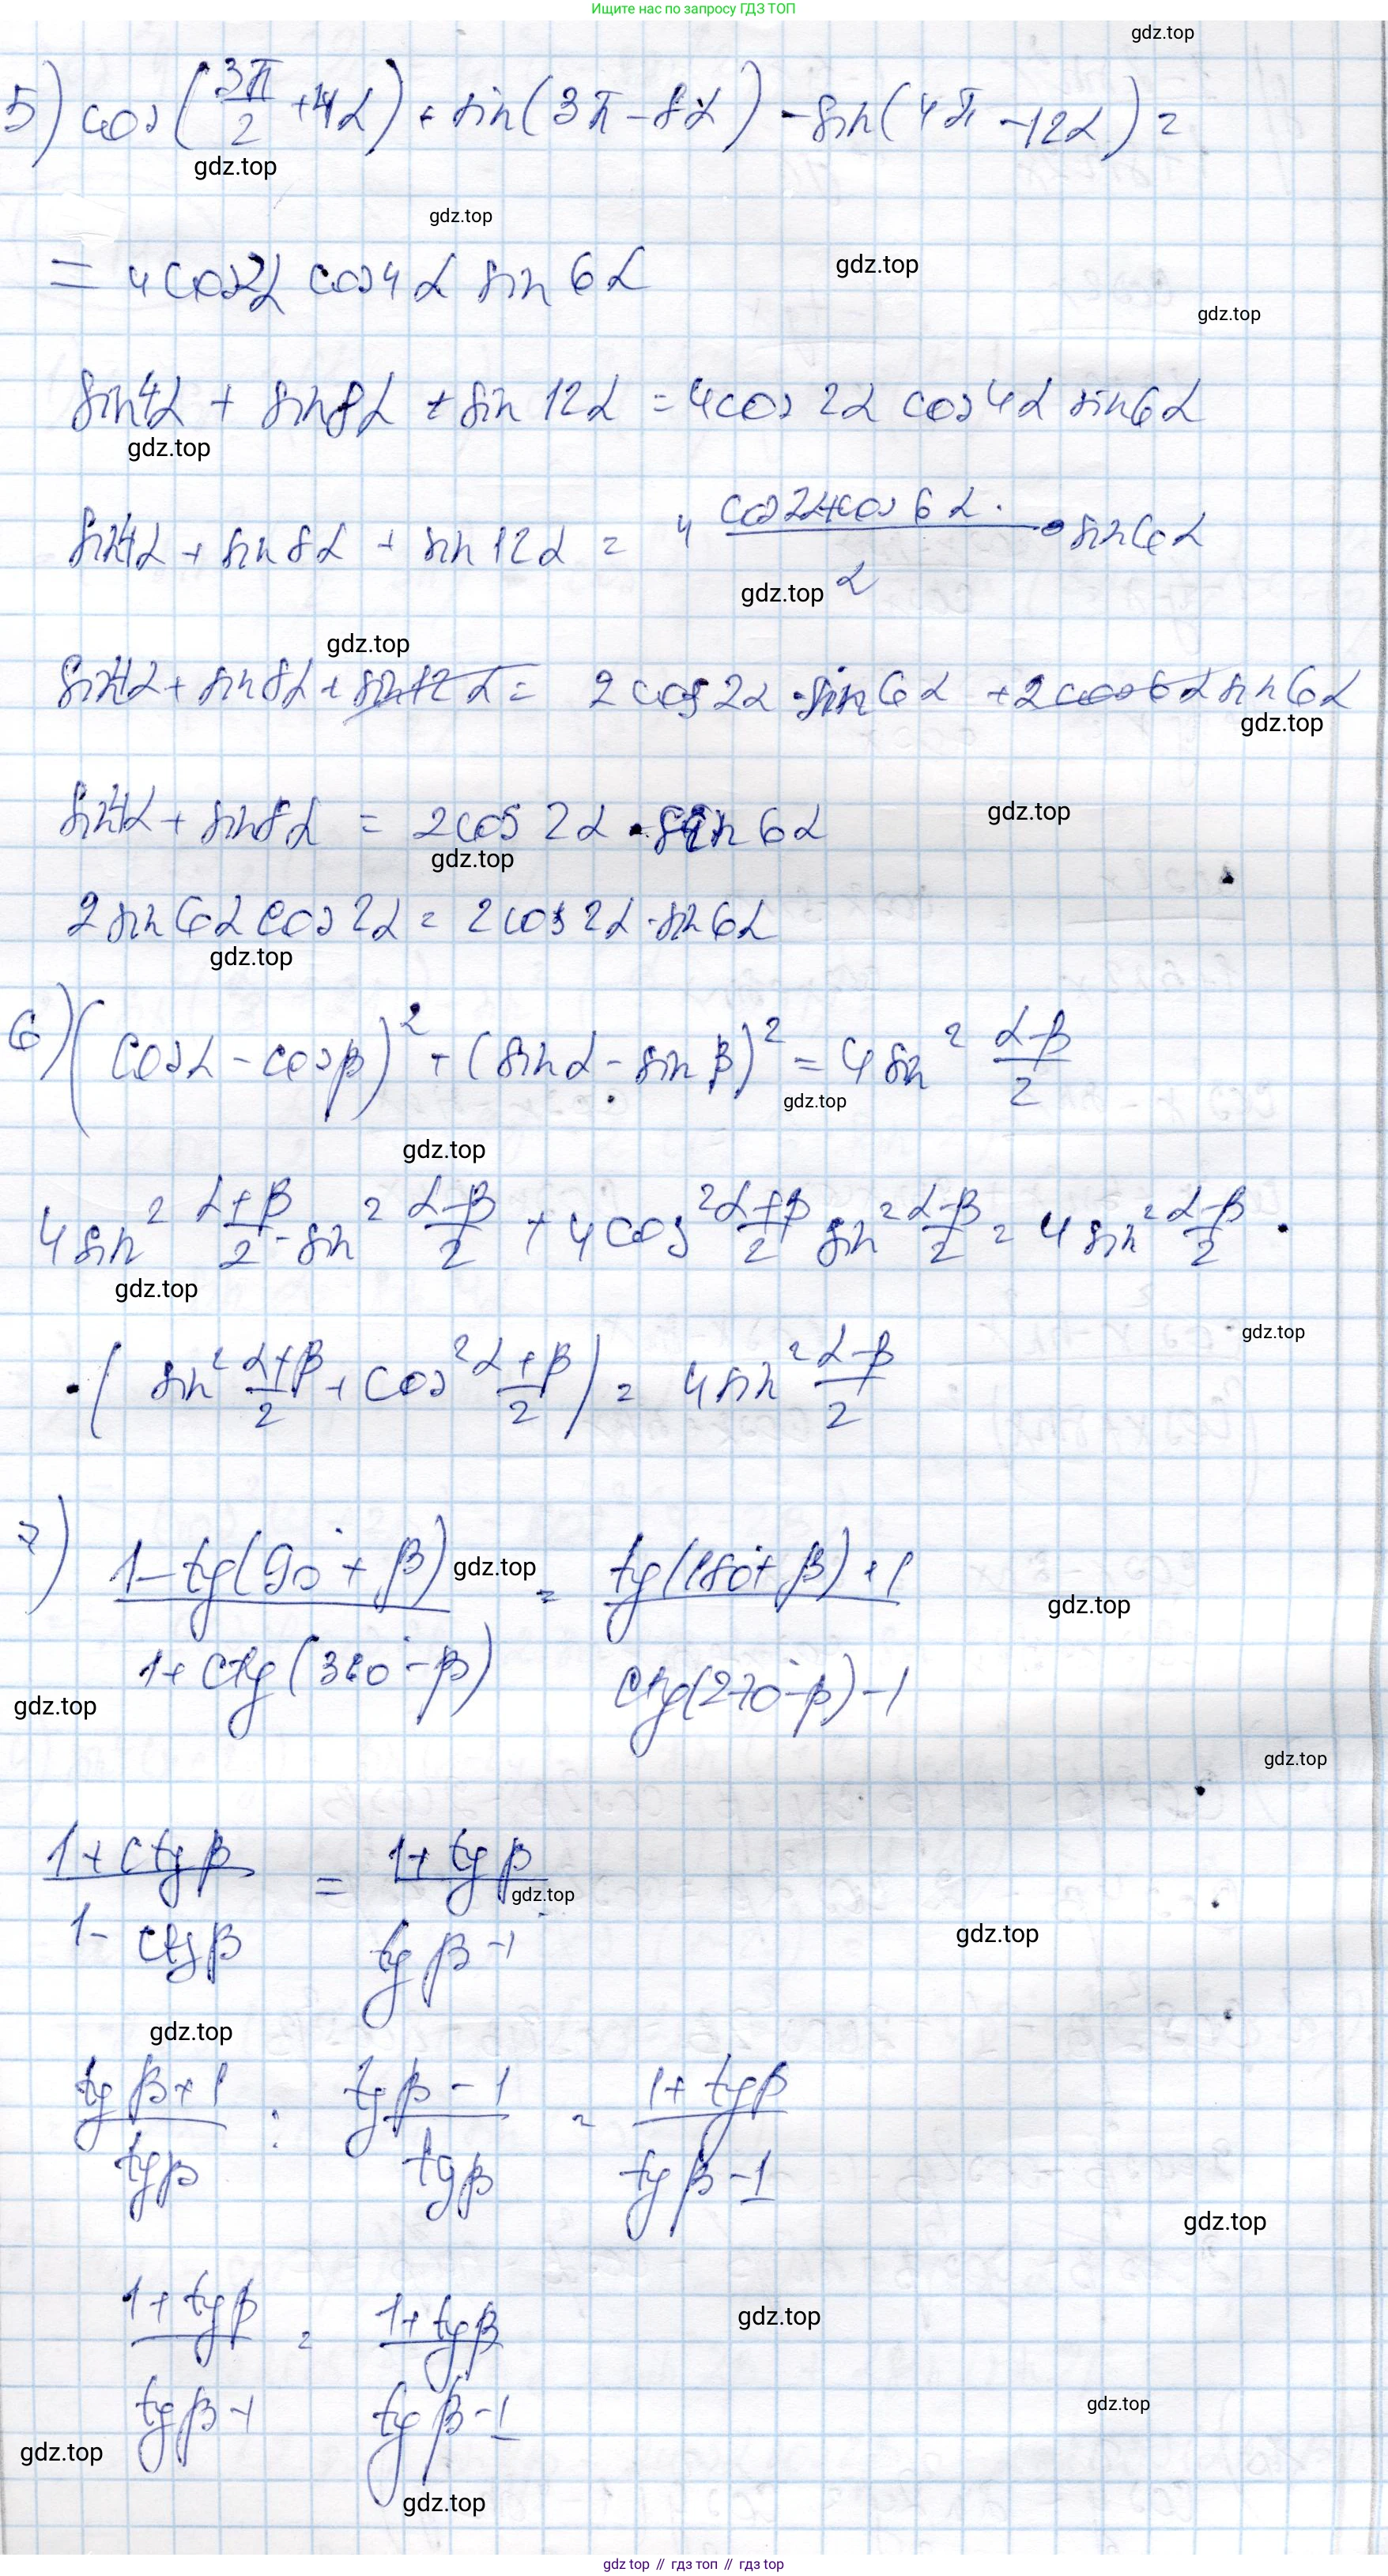 Ищите нас по запросу ГДЗ ТОП
gdz.top
5) cos(3π/2 + 4α) + sin(3π - 8α) - sin(4π - 12α) =
gdz.top
gdz.top
= 4cos2α cos4α sin6α
gdz.top
gdz.top
sin4α + sin8α + sin12α = 4cos2α cos4α sin6α
gdz.top
sin4α + sin8α + sin12α = 4 (cos2α+cos6α)/2 · sin6α
gdz.top
gdz.top
sin4α + sin8α + sin12α = 2cos2α·sin6α + 2cos6α sin6α
gdz.top
sin4α + sin8α = 2cos2α · sin6α
gdz.top
gdz.top
2sin6α cos2α = 2cos2α·sin6α
gdz.top
6) (cosα - cosβ)² + (sinα - sinβ)² = 4sin² (α-β)/2
gdz.top
gdz.top
4sin² (α+β)/2 · sin² (α-β)/2 + 4cos² (α+β)/2 sin² (α-β)/2 = 4sin² (α-β)/2 ·
gdz.top
gdz.top
· (sin² (α+β)/2 + cos² (α+β)/2) = 4sin² (α-β)/2
7) (1-tg(90°+β))/(1+ctg(360°-β)) = (tg(180°+β)+1)/(ctg(270°-β)-1)
gdz.top
gdz.top
gdz.top
gdz.top
(1+ctgβ)/(1-ctgβ) = (1+tgβ)/(tgβ-1)
gdz.top
gdz.top
gdz.top
(tgβ+1)/tgβ : (tgβ-1)/tgβ = (1+tgβ)/(tgβ-1)
gdz.top
(1+tgβ)/(tgβ-1) = (1+tgβ)/(tgβ-1)
gdz.top
gdz.top
gdz.top
gdz.top
gdz top // гдз топ // гдз top